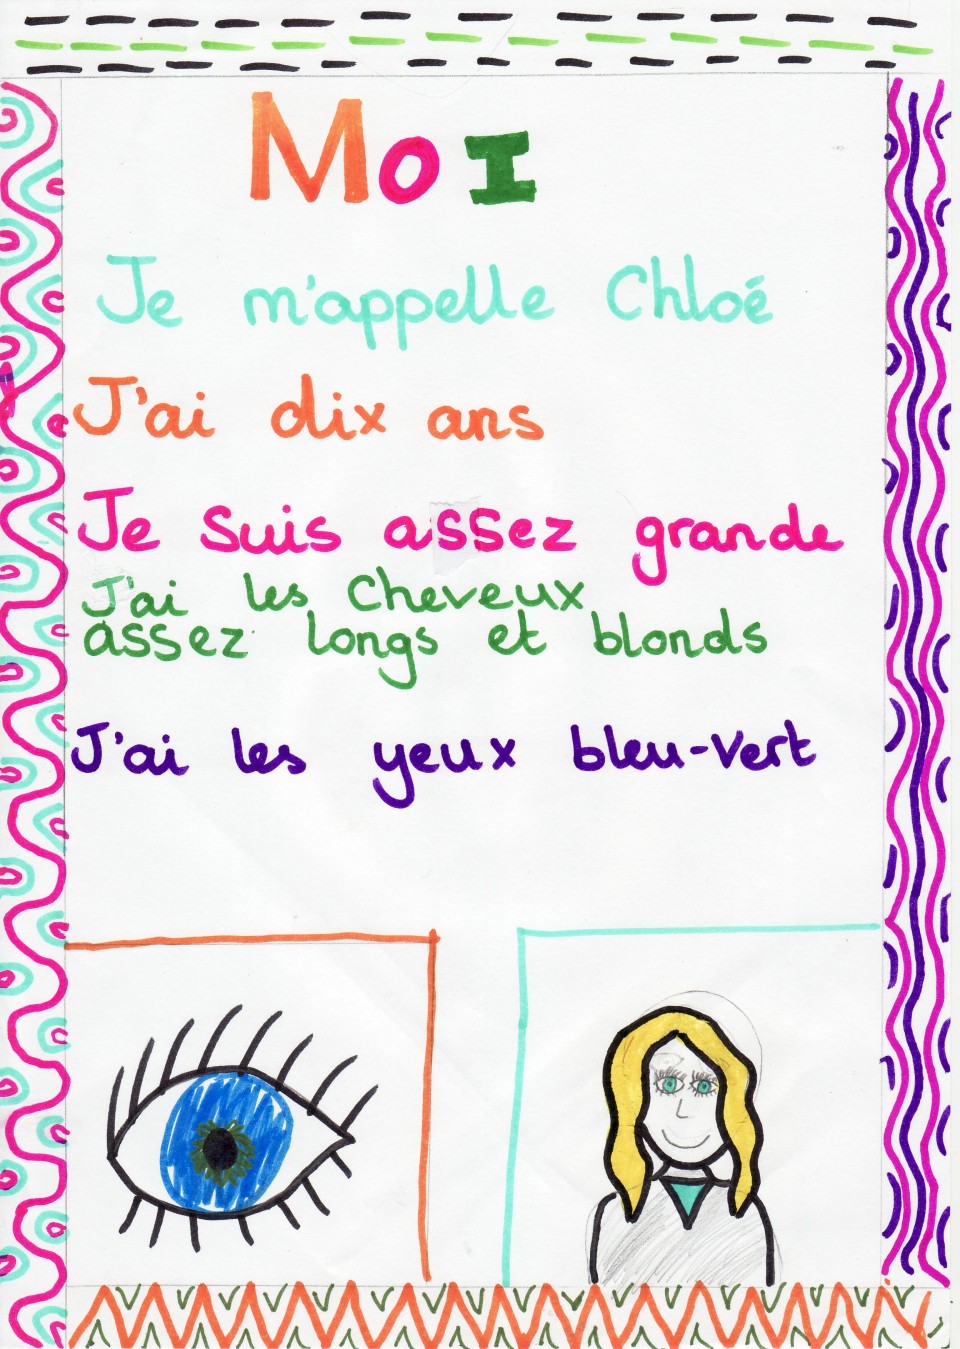 MoI
Je m'appelle Chloé
J'ai dix ans
Je suis assez grande
J'ai les cheveux
assez longs et blonds
J'ai les yeux bleu-vert